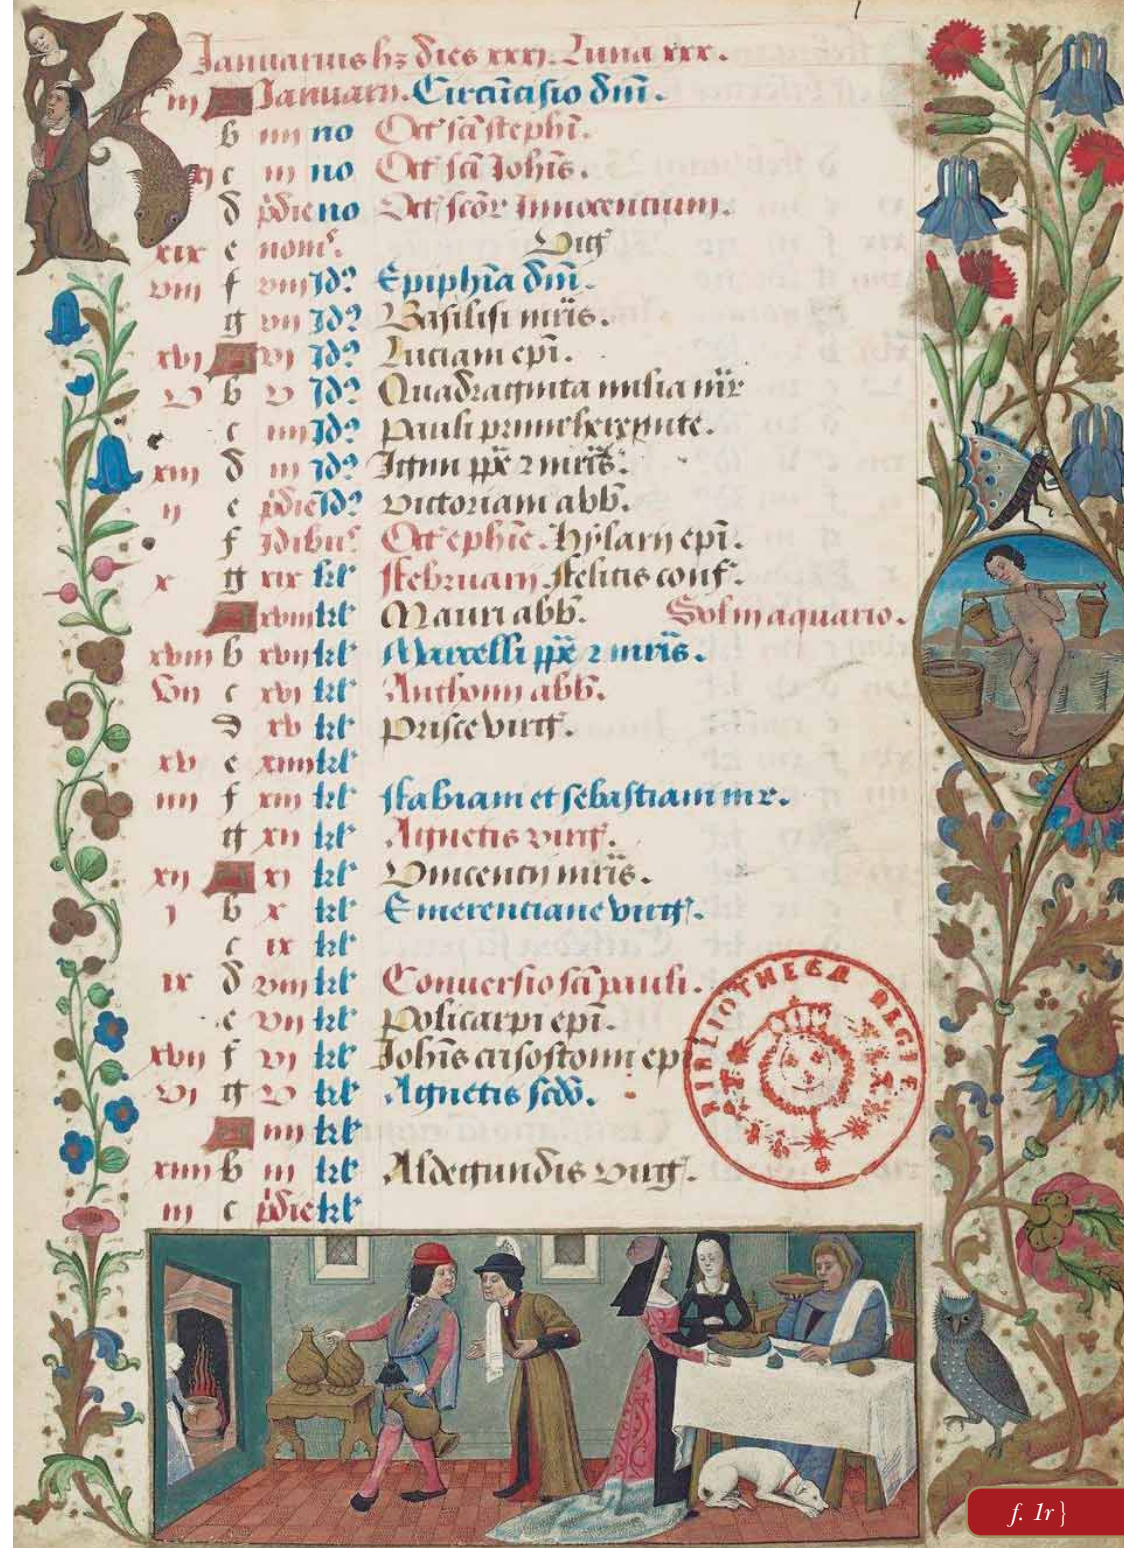 Januarius hz dies xxxi. Luna xxx.
iii Januarii. Circūcisio dñi.
b iiii no Oct scī stephī.
xi c iii no Oct scī Johīs.
d pdie no Oct scōr Innocentium.
xix e nonis. Vigˡ
viii f viii Idꝰ Epiphīa dñi.
g vii Idꝰ Basilisi mr̄is.
xvi vi Idꝰ Luciani epī.
v b v Idꝰ Quadraginta milia mr̄
c iiii Idꝰ Pauli primi
xiii d iii Idꝰ Igini pp̄e ⁊ mr̄is.
ii e pdie Idꝰ Victoriani abb̄.
f Idibus Oct ephīe. Hylarii epī.
x g xix kl' Februarii Felicis conf.
xviii kl' Mauri abb̄. Sol in aquario.
xviii b xvii kl' Marcelli pp̄e ⁊ mr̄is.
vii c xvi kl' Anthonii abb̄.
d xv kl' Prisce virg.
xv e xiiii kl'
iiii f xiii kl' Fabiani et sebastiani mr.
g xii kl' Agnetis virg.
xii xi kl' Vincentii mr̄is.
i b x kl' Emerenciane virg.
c ix kl'
ix d viii kl' Conuersio scī pauli.
e vii kl' Policarpi epī.
xvii f vi kl' Johīs crisostomi ep
vi g v kl' Agnetis scdō.
iiii kl'
xiiii b iii kl' Aldegundis virg.
iii c pdie kl'
BIBLIOTHECÆ REGIÆ
f. 1r}